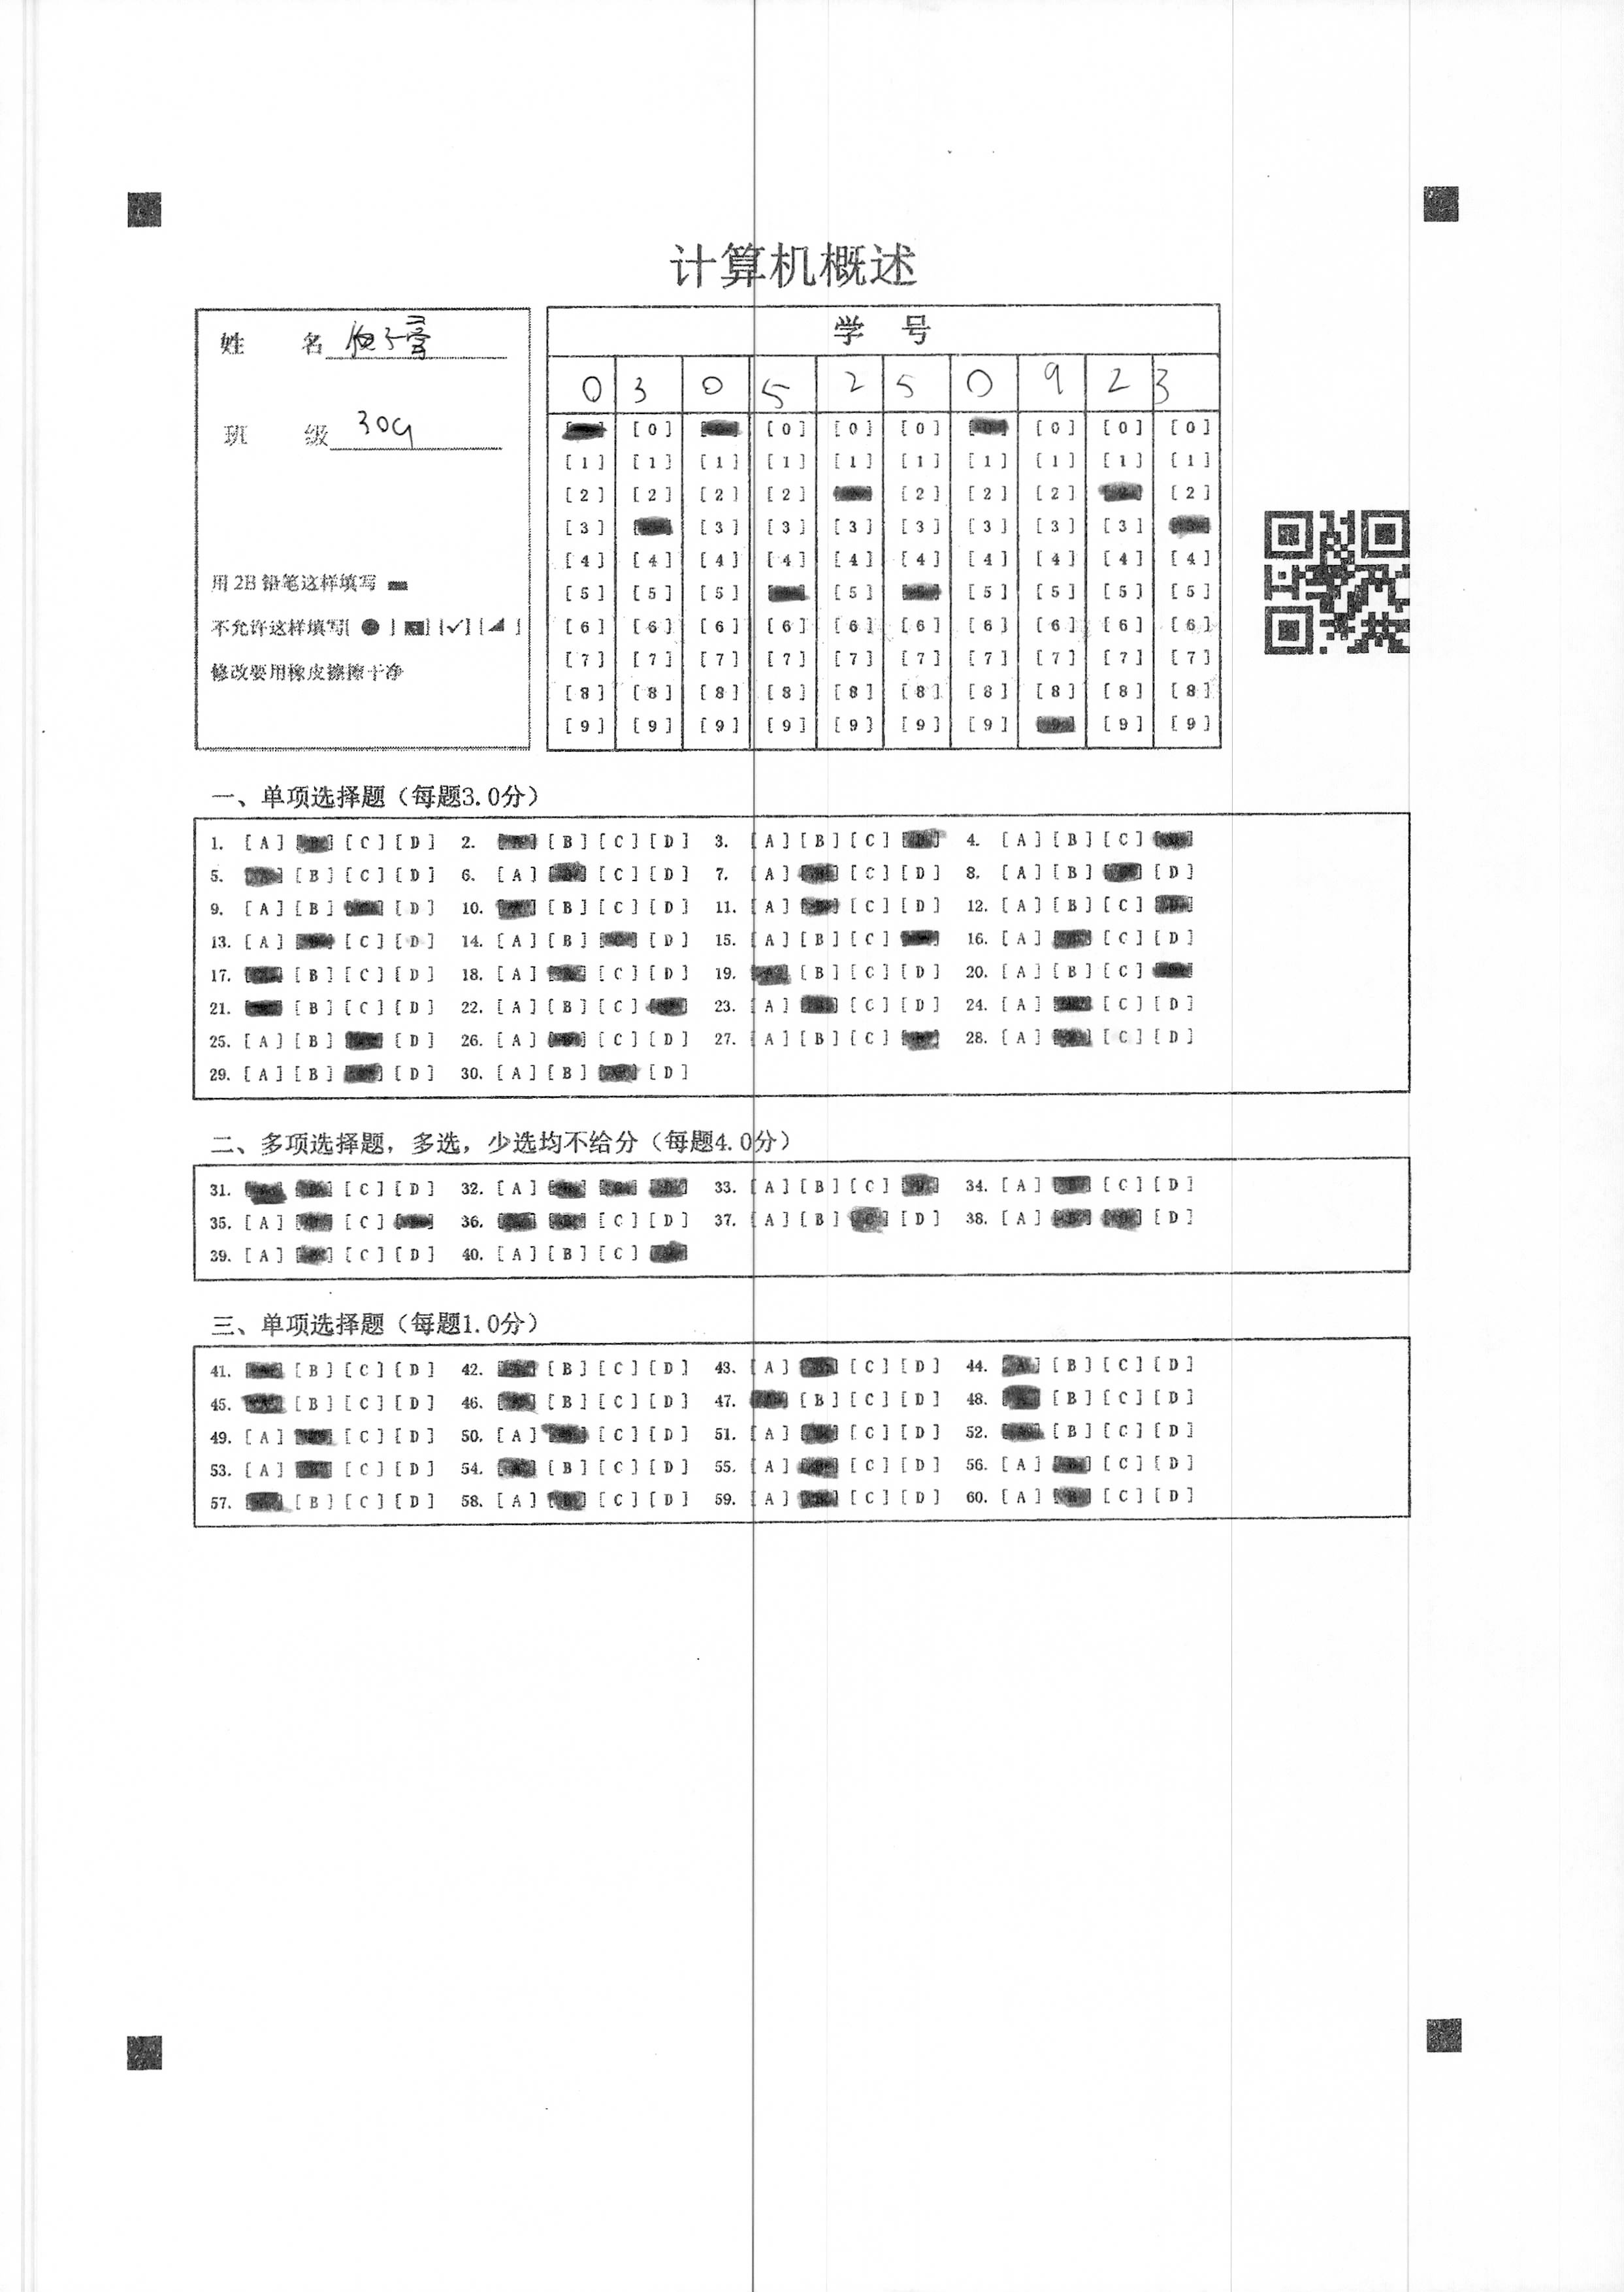 计算机概述
姓 名
班 级 309
用 2B 铅笔这样填写
不允许这样填写[ ● ] [ ] [✓] [◢ ]
修改要用橡皮擦擦干净
学 号
0 3 0 5 2 5 0 9 2 3
[0] [0] [0] [0] [0] [0] [0]
[1] [1] [1] [1] [1] [1] [1] [1] [1] [1]
[2] [2] [2] [2] [2] [2] [2] [2]
[3] [3] [3] [3] [3] [3] [3] [3]
[4] [4] [4] [4] [4] [4] [4] [4] [4] [4]
[5] [5] [5] [5] [5] [5] [5] [5]
[6] [6] [6] [6] [6] [6] [6] [6] [6] [6]
[7] [7] [7] [7] [7] [7] [7] [7] [7] [7]
[8] [8] [8] [8] [8] [8] [8] [8] [8] [8]
[9] [9] [9] [9] [9] [9] [9] [9] [9]
一、单项选择题（每题3.0分）
1. [A] [C] [D] 2. [B] [C] [D] 3. [A] [B] [C] 4. [A] [B] [C]
5. [B] [C] [D] 6. [A] [C] [D] 7. [A] [C] [D] 8. [A] [B] [D]
9. [A] [B] [D] 10. [B] [C] [D] 11. [A] [C] [D] 12. [A] [B] [C]
13. [A] [C] [D] 14. [A] [B] [D] 15. [A] [B] [C] 16. [A] [C] [D]
17. [B] [C] [D] 18. [A] [C] [D] 19. [B] [C] [D] 20. [A] [B] [C]
21. [B] [C] [D] 22. [A] [B] [C] 23. [A] [C] [D] 24. [A] [C] [D]
25. [A] [B] [D] 26. [A] [C] [D] 27. [A] [B] [C] 28. [A] [C] [D]
29. [A] [B] [D] 30. [A] [B] [D]
二、多项选择题，多选，少选均不给分（每题4.0分）
31. [C] [D] 32. [A] 33. [A] [B] [C] 34. [A] [C] [D]
35. [A] [C] 36. [C] [D] 37. [A] [B] [D] 38. [A] [D]
39. [A] [C] [D] 40. [A] [B] [C]
三、单项选择题（每题1.0分）
41. [B] [C] [D] 42. [B] [C] [D] 43. [A] [C] [D] 44. [B] [C] [D]
45. [B] [C] [D] 46. [B] [C] [D] 47. [B] [C] [D] 48. [B] [C] [D]
49. [A] [C] [D] 50. [A] [C] [D] 51. [A] [C] [D] 52. [B] [C] [D]
53. [A] [C] [D] 54. [B] [C] [D] 55. [A] [C] [D] 56. [A] [C] [D]
57. [B] [C] [D] 58. [A] [C] [D] 59. [A] [C] [D] 60. [A] [C] [D]